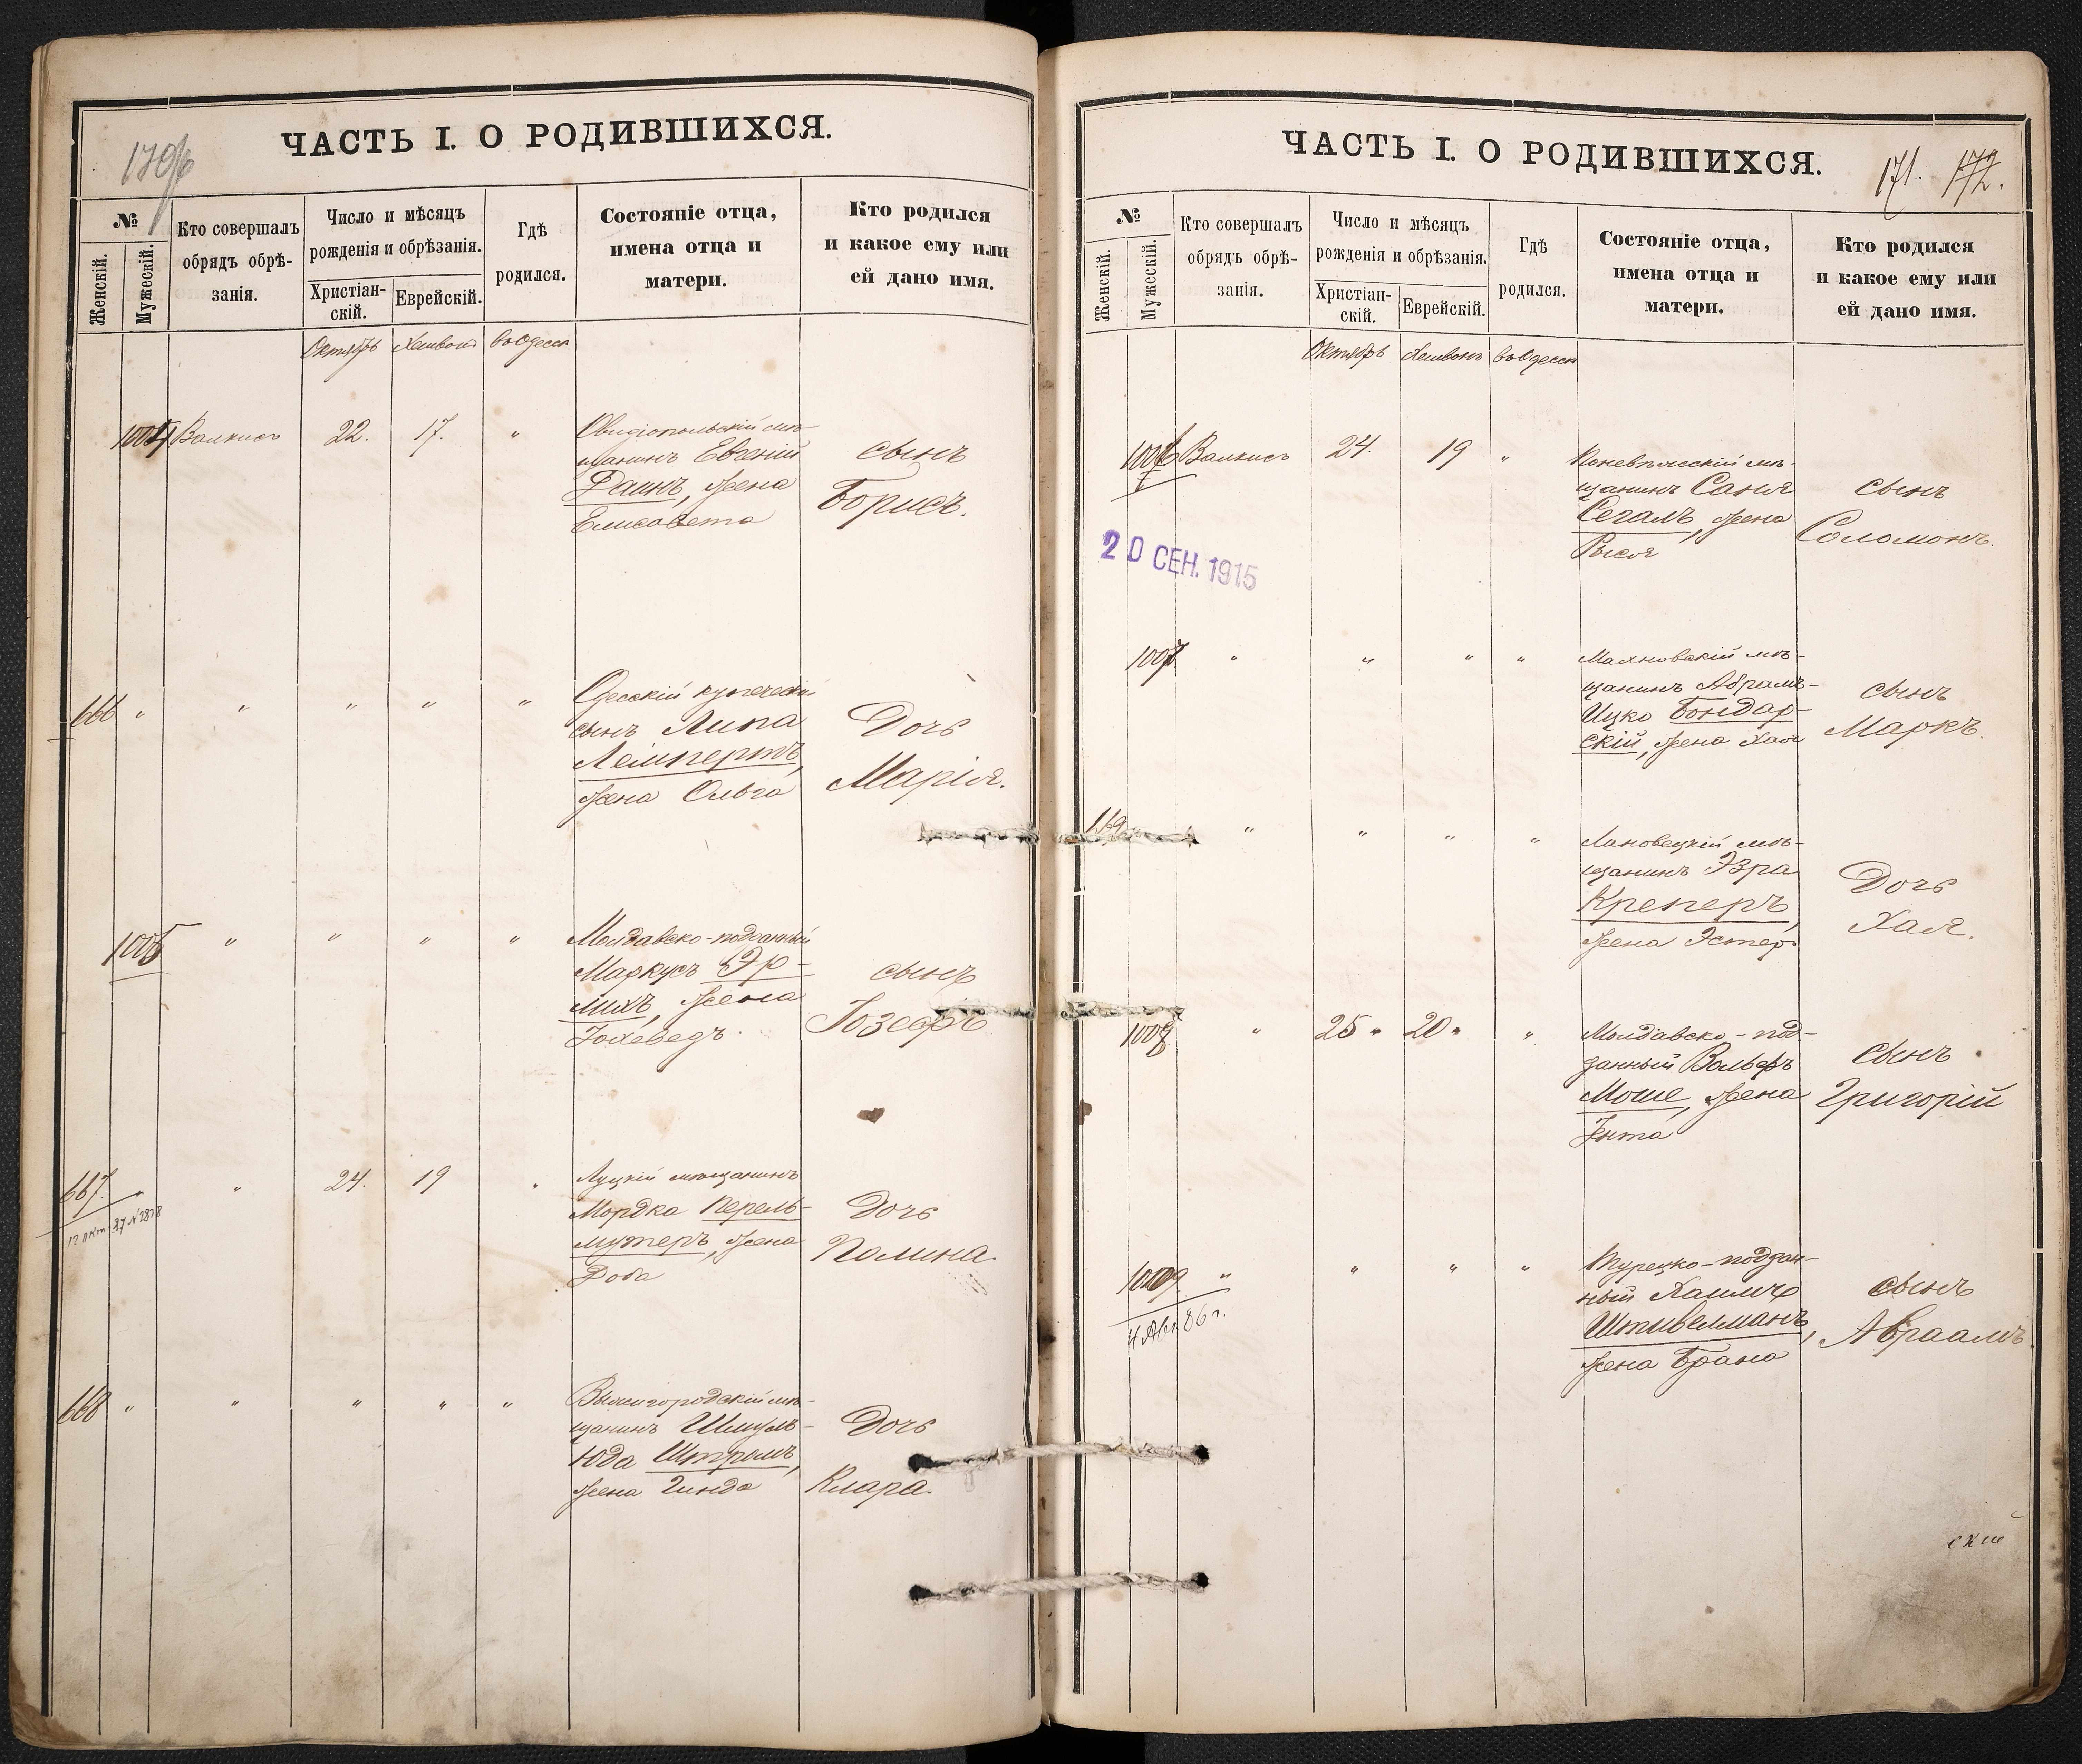 ЧАСТЬ I. О РОДИВШИХСЯ.
№
Женскій.
Мужескій.
Кто совершалъ
обрядъ обрѣ-
занія.
Число и мѣсяцъ
рожденія и обрѣзанія.
Христіан-
скій.
Еврейскій.
Гдѣ
родился.
Состояніе отца,
имена отца и
матери.
Кто родился
и какое ему или
ей дано имя.
Октябрь Хешвонъ въ Одессѣ
1004 Валкисъ 22. 17. "
Овидіопольскій мѣ-
щанинъ Евгеній
Раинъ, жена
Елисавета
сынъ
Борисъ.
666 " " " " "
Одесскій купеческій
сынъ Липа
Лемпертъ,
жена Ольга
Дочь
Марія.
1005 " " " "
Молдавско-подданный
Маркусъ Эр-
лихъ, жена
Іохеведъ.
сынъ
Іозефъ
667. " " 24. 19 "
Луцкій мѣщанинъ
Мордка Перель-
мутеръ, жена
Роза
Дочь
Полина.
668 " " " " "
Вышгородскій мѣ-
щанинъ Шмуль-
Юда Штромъ,
жена Гинда
Дочь
Клара.
ЧАСТЬ I. О РОДИВШИХСЯ.
171. 172.
№
Женскій.
Мужескій.
Кто совершалъ
обрядъ обрѣ-
занія.
Число и мѣсяцъ
рожденія и обрѣзанія.
Христіан-
скій.
Еврейскій.
Гдѣ
родился.
Состояніе отца,
имена отца и
матери.
Кто родился
и какое ему или
ей дано имя.
Октябрь Хешвонъ въ Одессѣ
1006 Валкисъ 24. 19 "
Поневѣжсскій мѣ-
щанинъ Саня
Сегалъ, жена
Рыся
сынъ
Соломонъ.
20 СЕН. 1915
1007 " " " "
Махновскій мѣ-
щанинъ Абрамъ-
Ицко Бондар-
скій, жена Хая
сынъ
Маркъ.
669 " " " "
Лановецкій мѣ-
щанинъ Эзра
Креперъ,
жена Эстеръ
Дочь
Хая.
1008 " 25 " 20 " "
Молдавско-под-
данный Вольфъ
Моше, жена
Ента
сынъ
Григорій
1009 " " " "
4 Авг. 86 г.
Турецко-поддан-
ный Хаимъ
Штивельманъ,
жена Брана
сынъ
Авраамъ